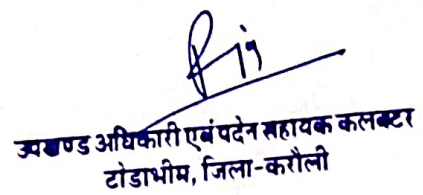 उपखण्ड अधिकारी एवं पदेन सहायक कलक्टर
टोडाभीम, जिला-करौली